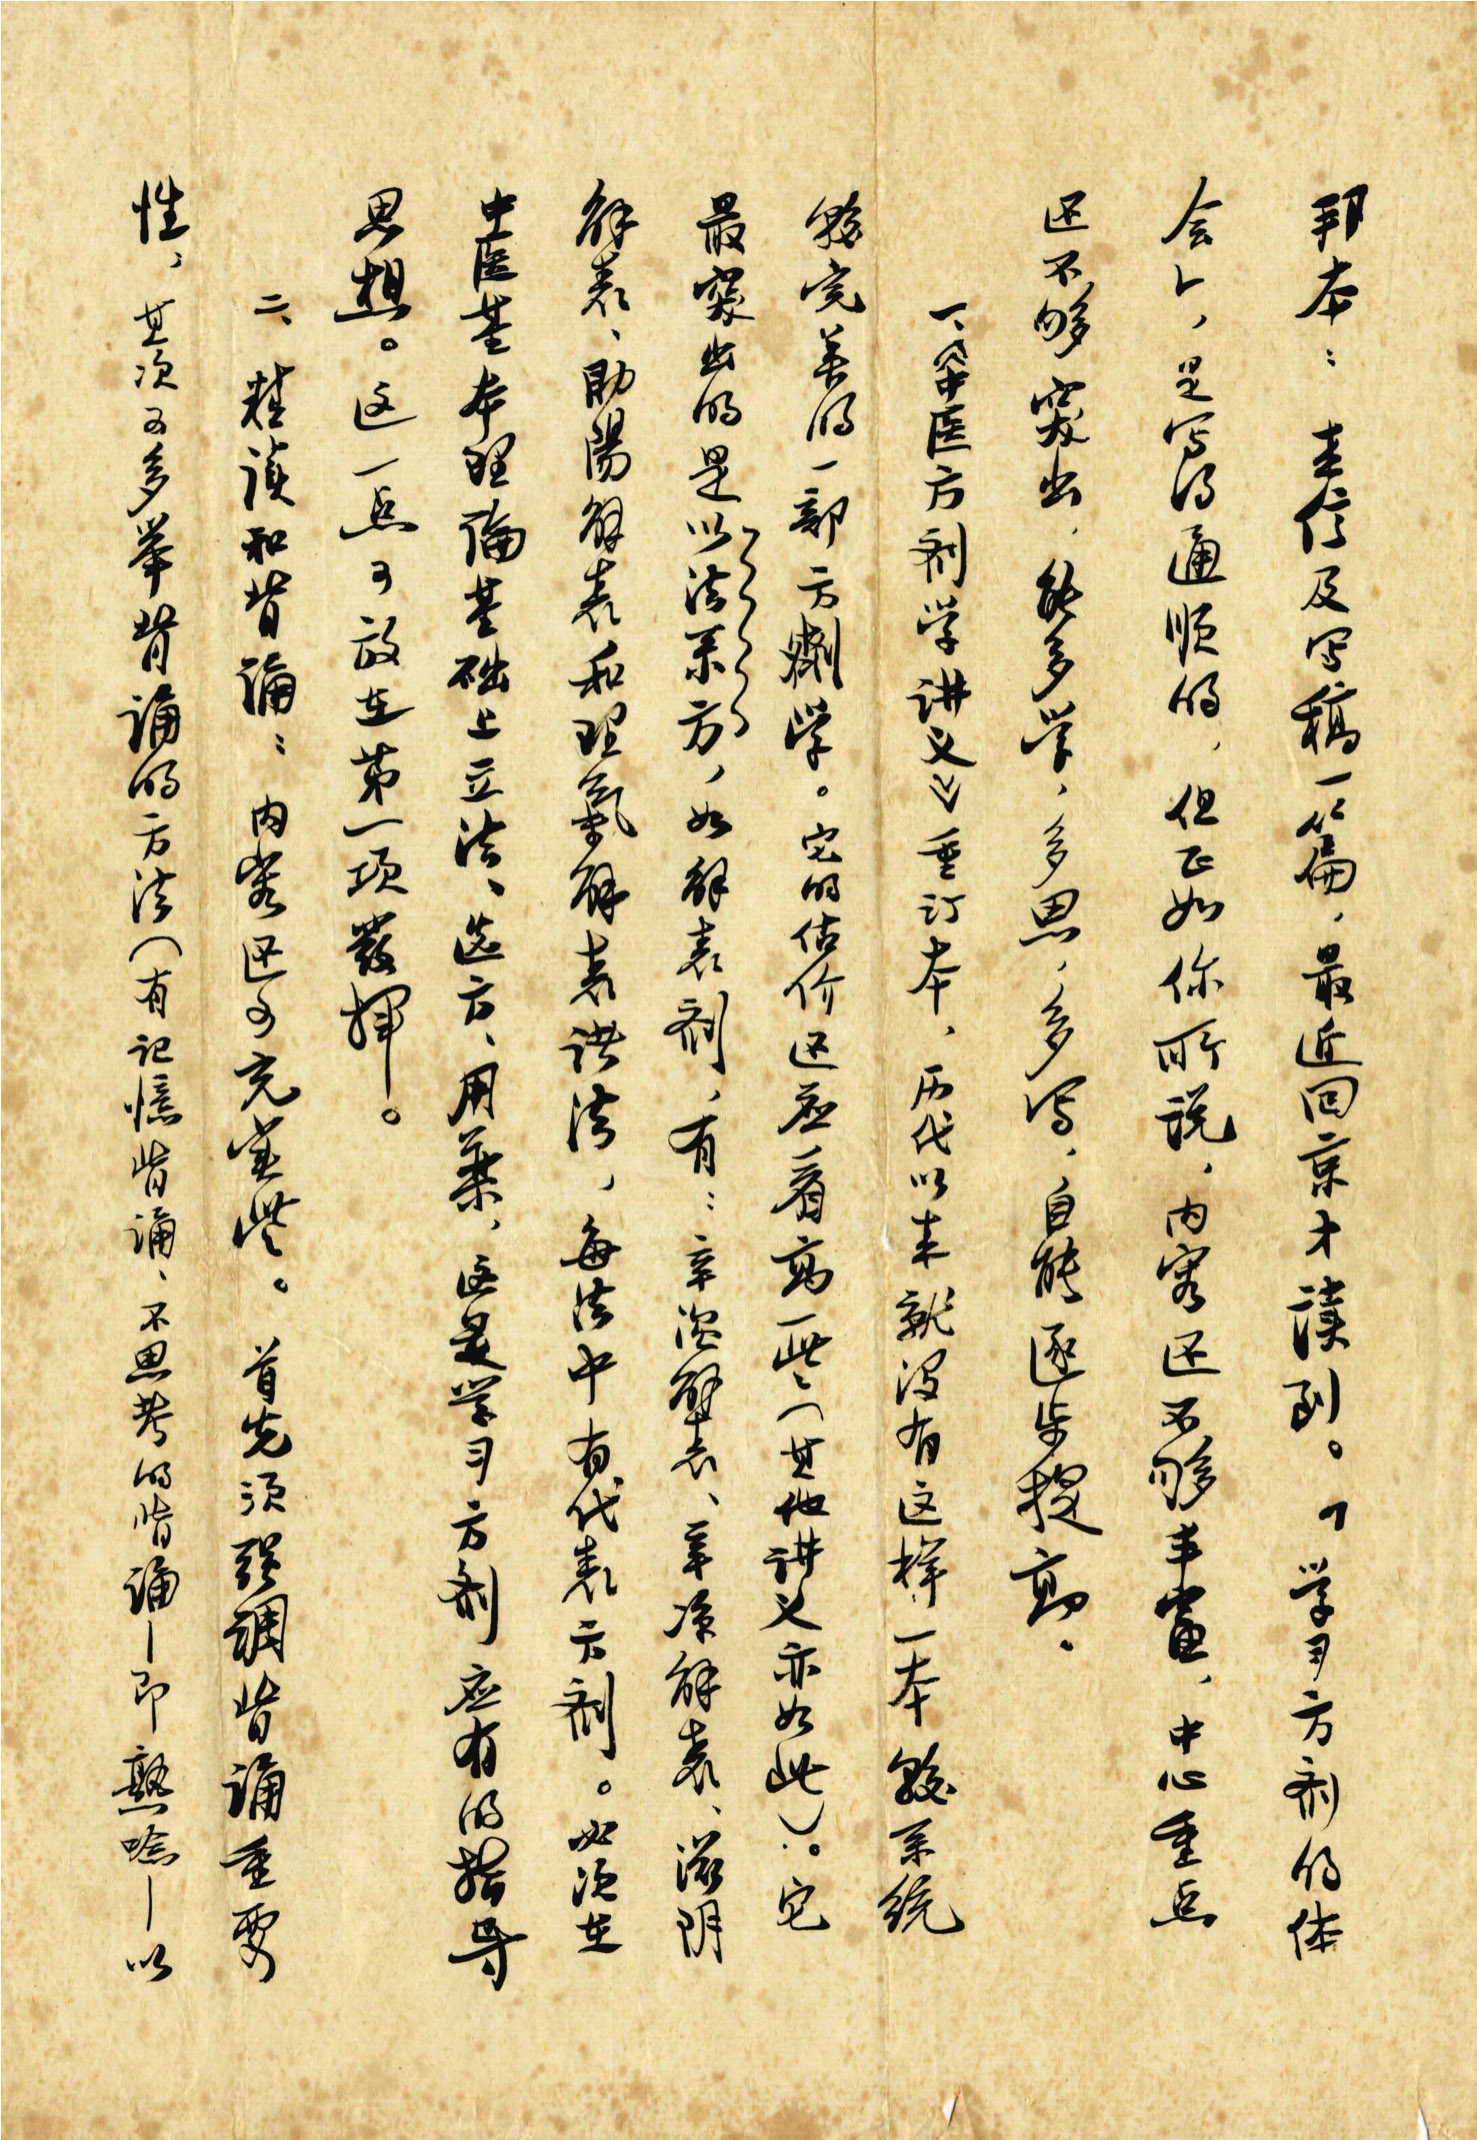 邦本：来信及写稿一篇，最近回京才读到。「学习方剂的体
会」，是写得通顺的，但正如你所说，内容还不够丰富，中心重点
还不够突出，能多学，多思，多写，自能逐步提高。
一、《中医方剂学讲义》重订本，历代以来就没有这样一本较系统
较完美的一部方剂学。它的估价还应看高一些（其他讲义亦如此）。它
最突出的是以法系方，如解表剂，有：辛温解表、辛凉解表、滋阴
解表、助陽解表和理氣解表诸法，每法中有代表方剂。必须在
中医基本理論基础上立法、选方、用藥，这是学习方剂应有的指导
思想。这一点可放在第一项發揮。
二、精读和背誦：内容还可充实些。首先须强調背誦重要
性，其次可多举背誦的方法（有记憶背誦、不思考的背誦—即熟唸—以